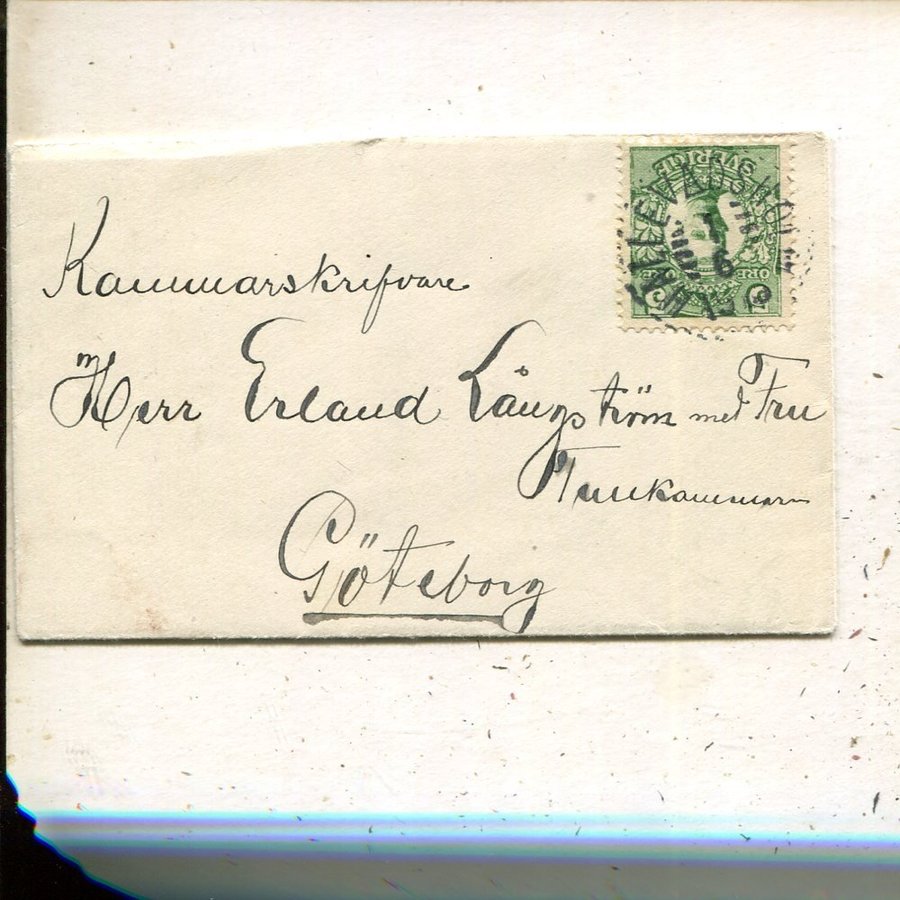 Kammarskrifvare
Herr Erland Långström med Fru
Göteborg
SVERIGE
5 ÖRE